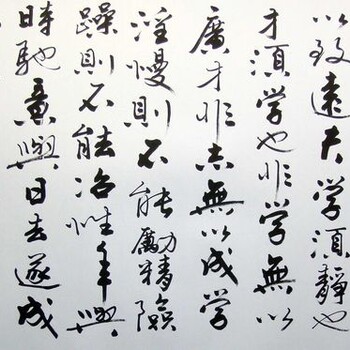 以致遠夫学須靜也
才須学也非学無以
廣才非志無以成学
淫慢則不能勵精險
躁則不能冶性年與
時馳意與日去遂成